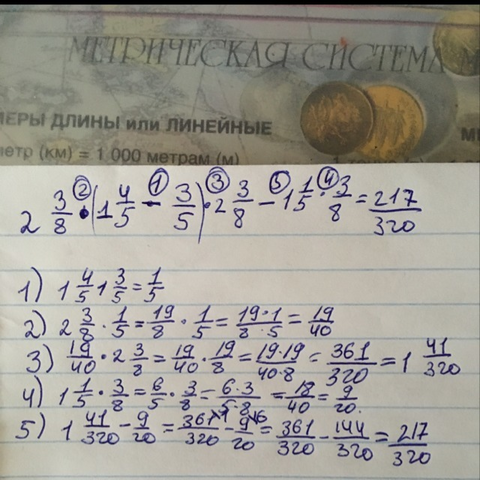 МЕТРИЧЕСКАЯ СИСТЕМА М
МЕРЫ ДЛИНЫ или ЛИНЕЙНЫЕ М
метр (км) = 1 000 метрам (м)
② ① ③ ⑤ ④
2 3/8 · (1 4/5 - 3/5) · 2 3/8 - 1 1/5 · 3/8 = 217/320
1) 1 4/5 1 3/5 = 1/5
2) 2 3/8 · 1/5 = 19/8 · 1/5 = 19·1/8·5 = 19/40
3) 19/40 · 2 3/8 = 19/40 · 19/8 = 19·19/40·8 = 361/320 = 1 41/320
4) 1 1/5 · 3/8 = 6/5 · 3/8 = 6·3/5·8 = 18/40 = 9/20.
5) 1 41/320 - 9/20 = 361/320 - 9/20 = 361/320 - 144/320 = 217/320